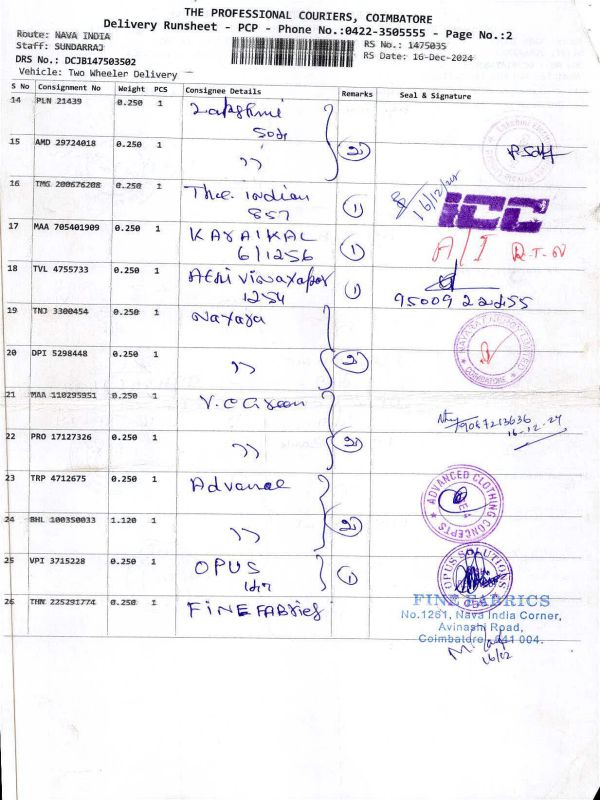 THE PROFESSIONAL COURIERS, COIMBATORE
Delivery Runsheet - PCP - Phone No.:0422-3505555 - Page No.:2
Route: NAVA INDIA
Staff: SUNDARRAJ
RS No.: 1475035
DRS No.: DCJB147503502
RS Date: 16-Dec-2024
Vehicle: Two Wheeler Delivery
S No Consignment No Weight PCS Consignee Details Remarks Seal & Signature
14 PLN 21439 0.250 1 Lakshmi
15 AMD 29724018 0.250 1 ,, 2
16 TMG 200676208 0.250 1 The indian 1 16/12/24 ICC
857
17 MAA 705401909 0.250 1 KARAIKAL 1 A/I
6/1256
18 TVL 4755733 0.250 1 1
1254
19 TNJ 3300454 0.250 1
20 DPI 5298448 0.250 1 ,, 2 COIMBATORE
21 MAA 110295951 0.250 1 V.C Green
16-12-24
22 PRO 17127326 0.250 1 ,, 2
23 TRP 4712675 0.250 1 Advance ADVANCED CLOTHING CONCEPTS
24 BHL 100350033 1.120 1 ,, 2
25 VPI 3715228 0.250 1 OPUS 1 OPUS SOLUTIONS
26 THN 225291774 0.250 1 FINE FABRICS
FINE FABRICS
No.1261, Nava India Corner,
Avinashi Road,
Coimbatore 641 004.